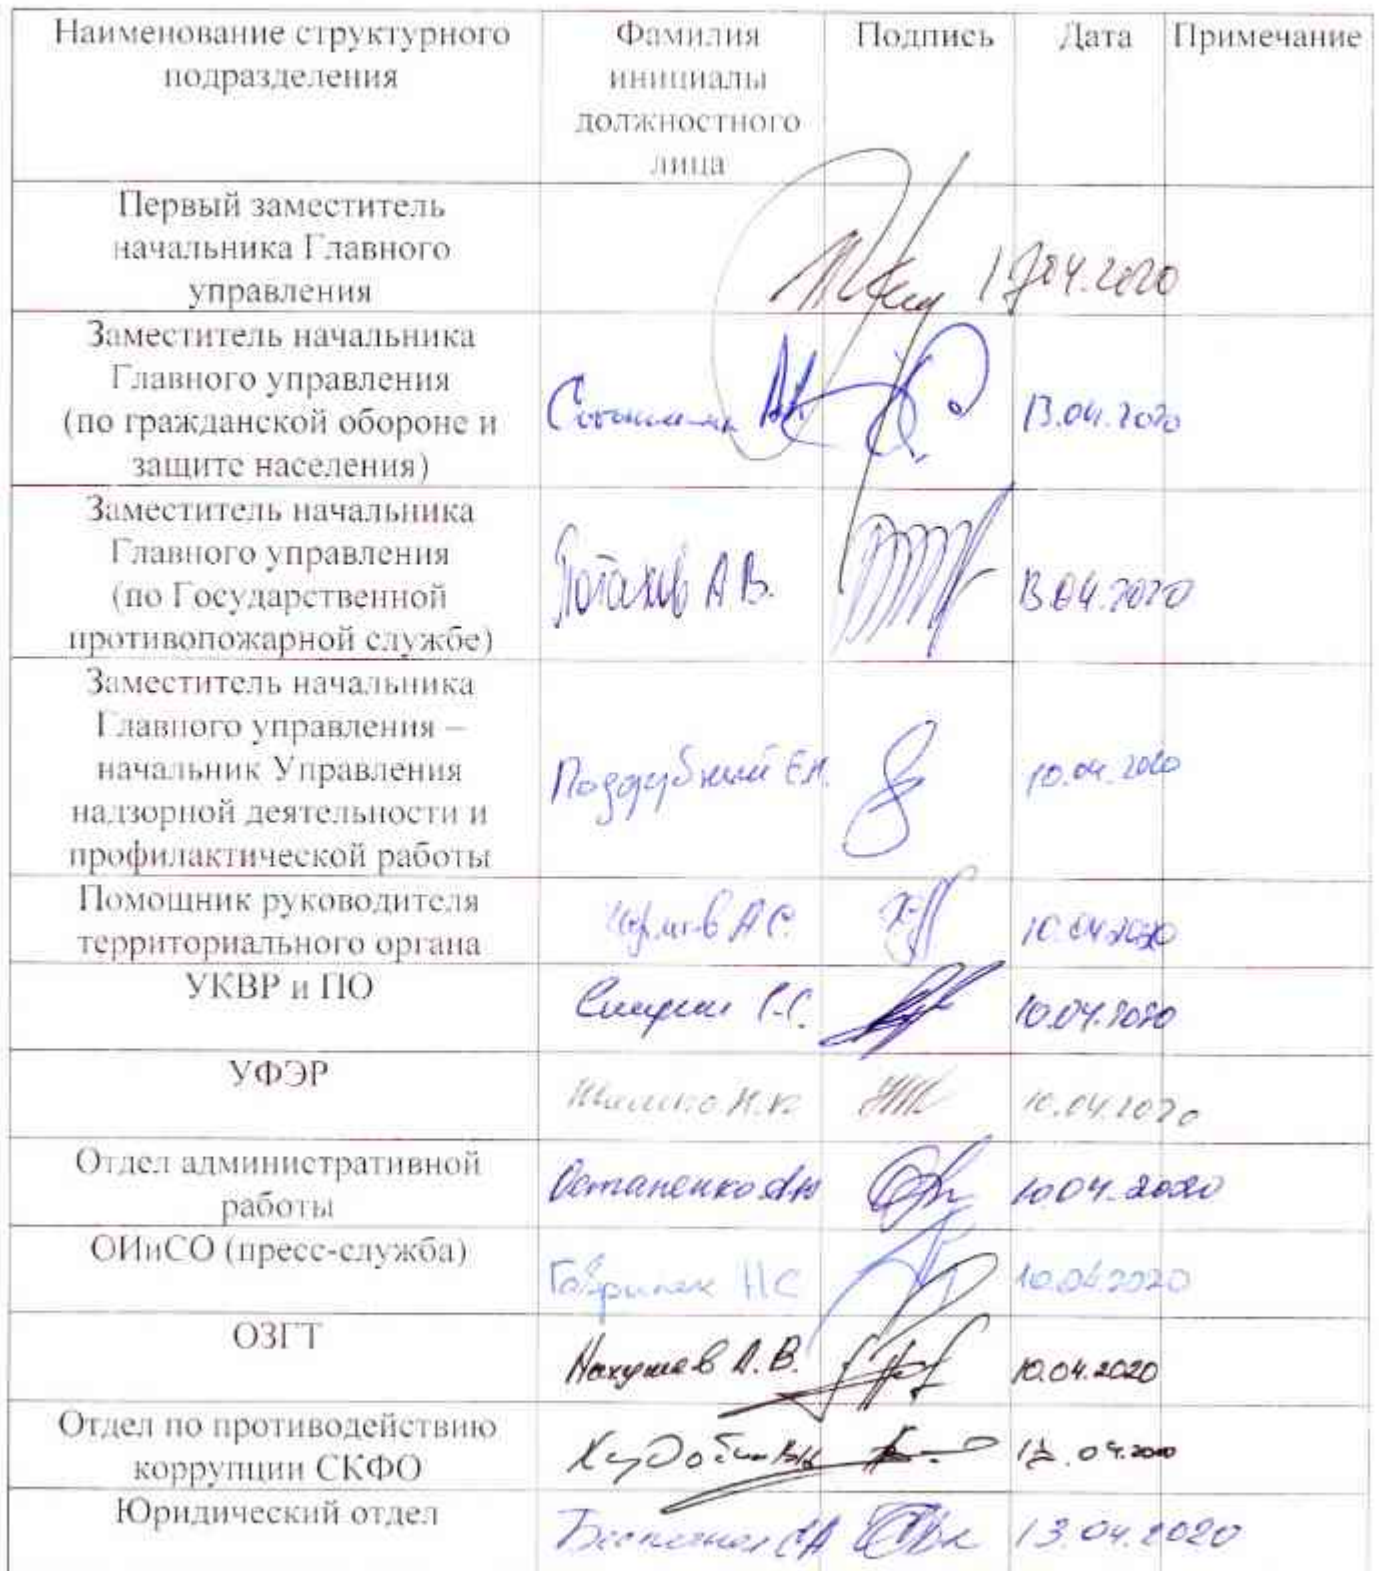 Наименование структурного
подразделения
Фамилия
инициалы
должностного
лица
Подпись
Дата
Примечание
Первый заместитель
начальника Главного
управления
04.2020
Заместитель начальника
Главного управления
(по гражданской обороне и
защите населения)
13.04.2020
Заместитель начальника
Главного управления
(по Государственной
противопожарной службе)
А.В.
13.04.2020
Заместитель начальника
Главного управления –
начальник Управления
надзорной деятельности и
профилактической работы
Поддубный Е.Н.
10.04.2020
Помощник руководителя
территориального органа
А.С.
10.04.2020
УКВР и ПО
С.С.
10.04.2020
УФЭР
10.04.2020
Отдел административной
работы
Остапенко
10.04.2020
ОИиСО (пресс-служба)
Гавриляк Н С
10.04.2020
ОЗГТ
Нахушев А.В.
10.04.2020
Отдел по противодействию
коррупции СКФО
04.2020
Юридический отдел
13.04.2020